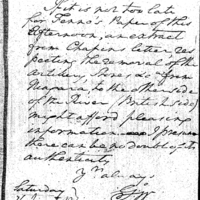 If it is not too late
for Fenno's Paper of this
Afternoon, an extract
from Chapin's letter res
pecting the removal of the
Artillery, Stores &c from
Niagara to the other side
of the River (British side)
might afford pleasing
information. I presume
there can be no doubt of its
authenticity.
Yrs always
Saturday